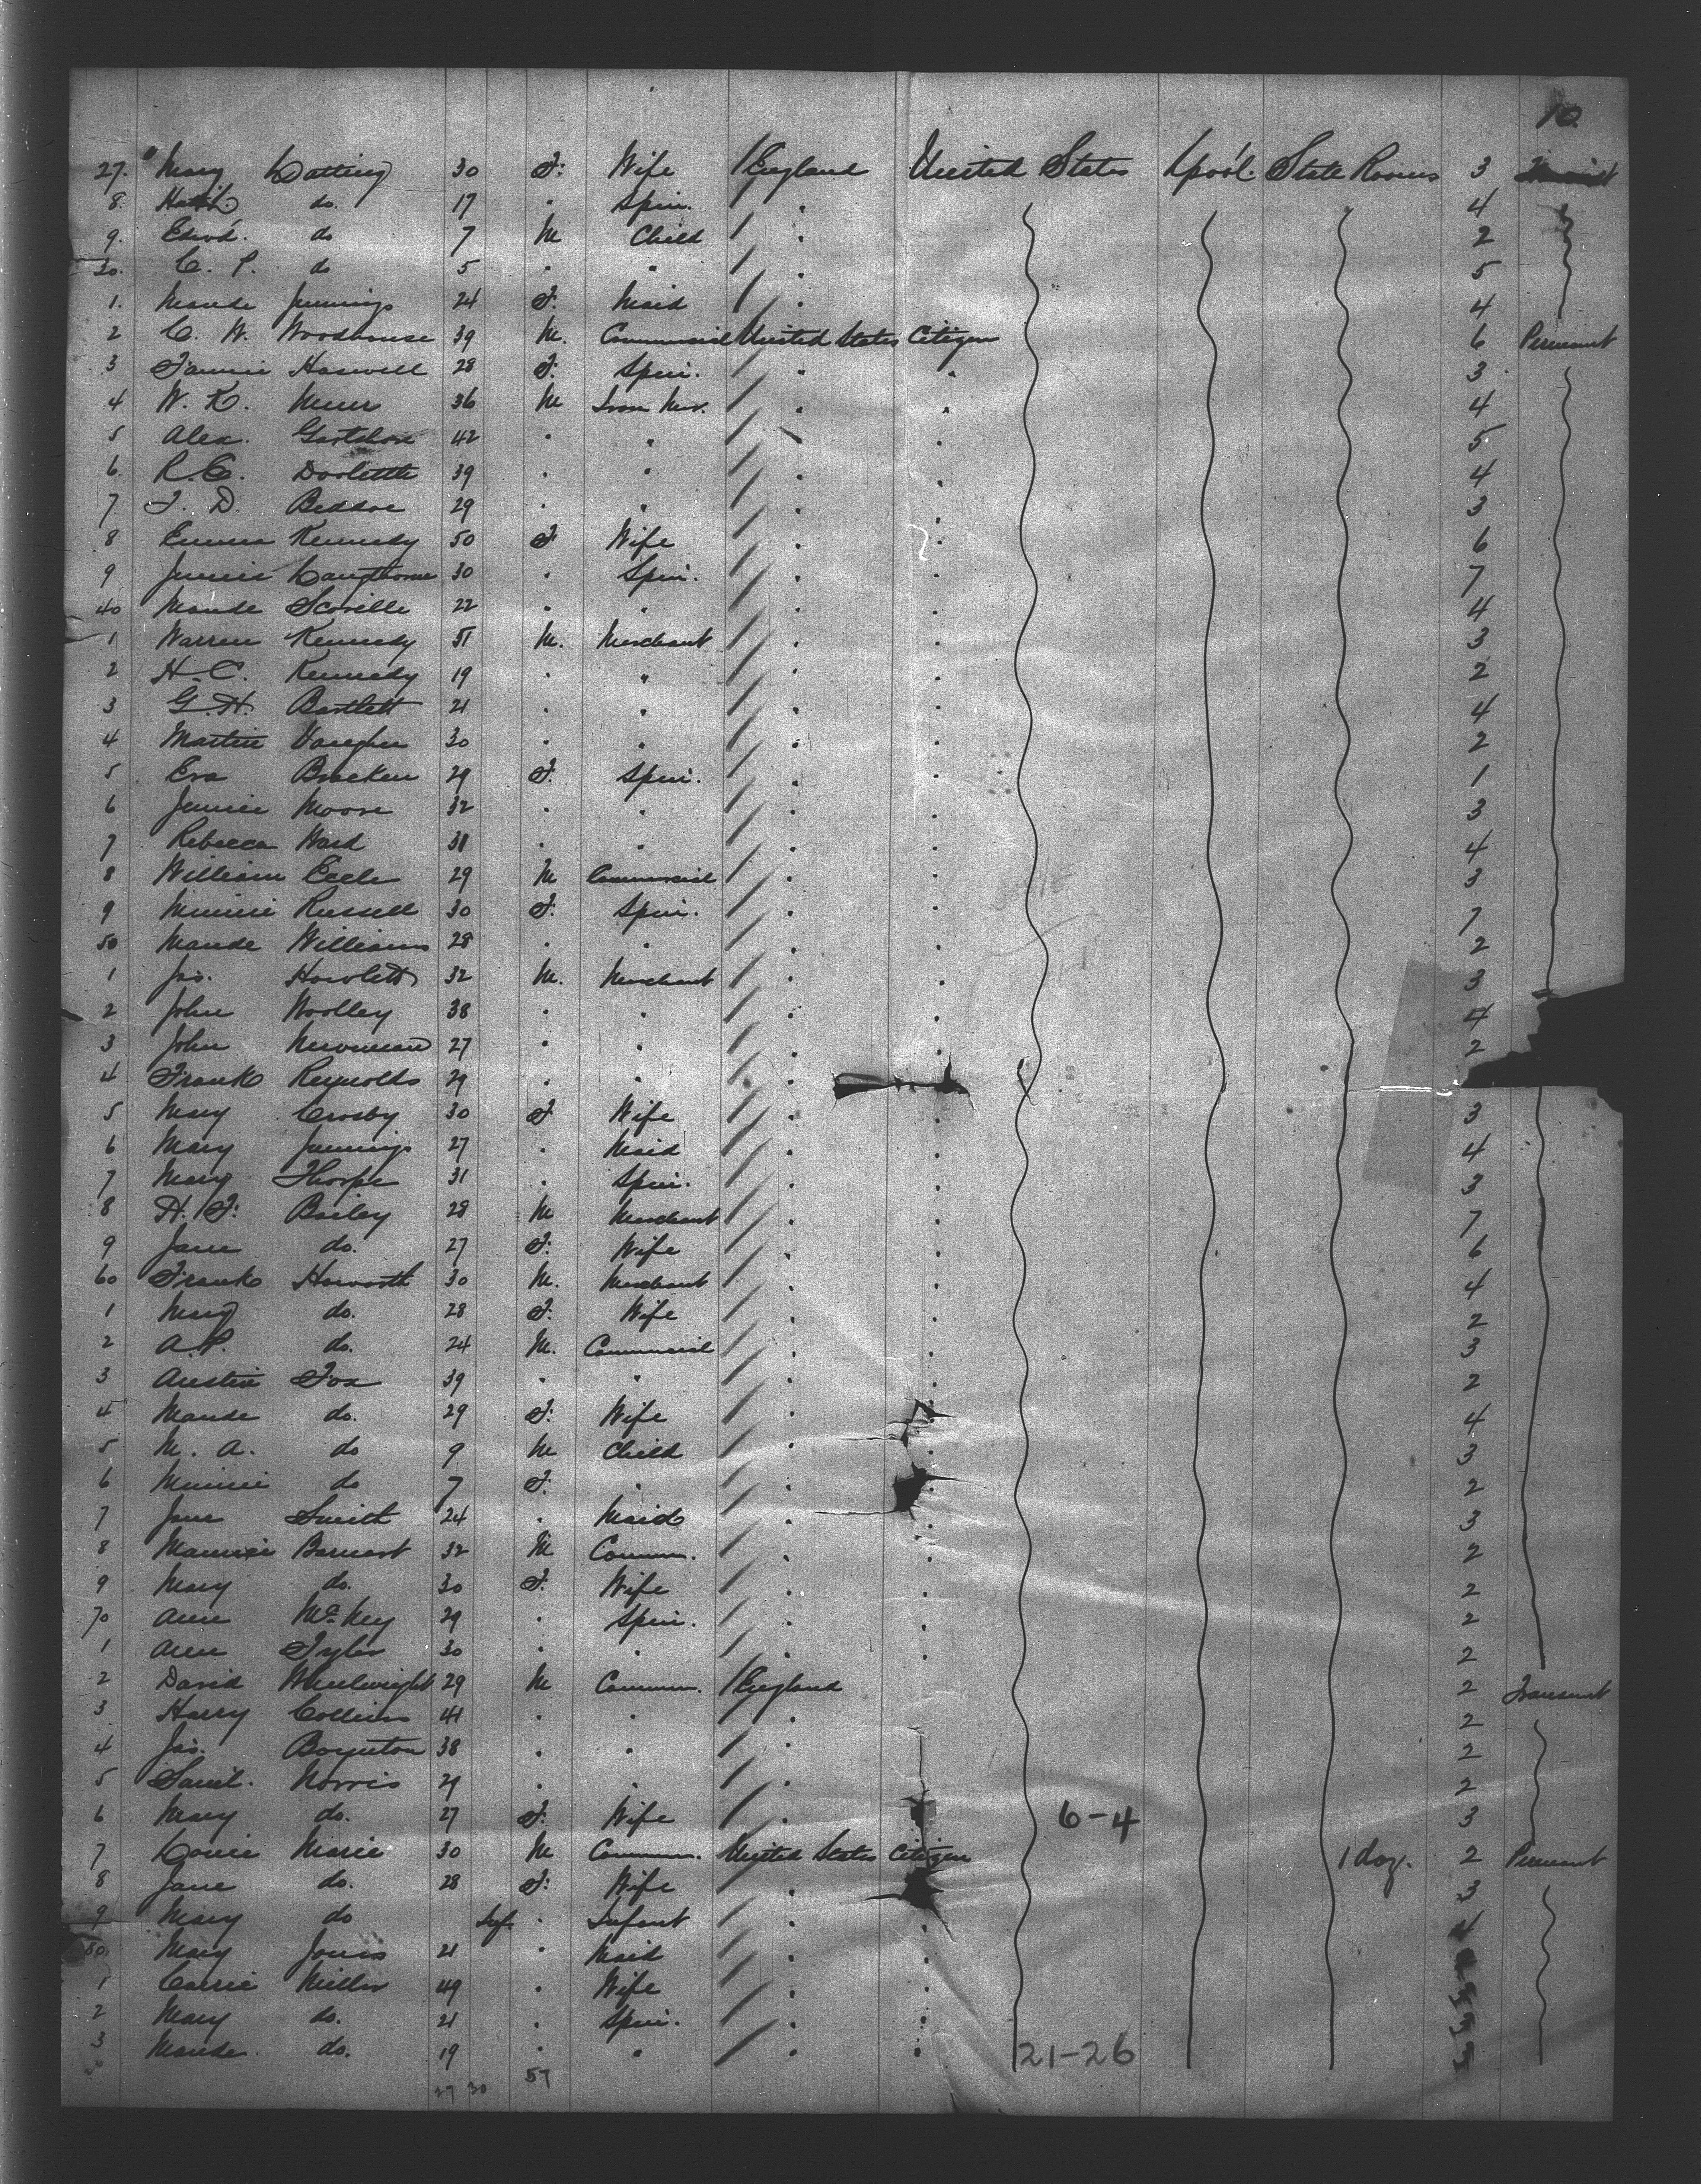 10.
27. Mary Latting 30 F. Wife England United States Lpool. State Rooms 3
8. do. 17 " Spin. " 4
9. Edwd. do 7 M Child " 2
30. C. P. do 5 " " " 5
1. Maude Jennings 24 F. Maid " 4
2 C. W. Woodhouse 39 M. Commercial United States Citizen 6 Permant
3 Fannie Haswell 28 F. Spin. " " 3
4 W. K. 36 M Iron Mer. " " 4
5 Alex. Gartshore 42 " " " " 5
6. R. C. Doolittle 39 " " " " 4
7 T. D. Beddoe 29 " " " " 3
8 Emma Kennedy 50 F Wife " " 6
9 Jennie 30 " Spin. " " 7
40 Maude Scoville 22 " " " " 4
1 Warren Kennedy 51 M. Merchant " " 3
2 H. C. Kennedy 19 " " " " 2
3 G. H. Bartlett 21 " " " " 4
4 Martin Vaughn 30 " " " " 2
5 Eva Bracken 29 F. Spin. " " 1
6 Jennie Moore 32 " " " " 3
7 Rebecca Ward 38 " " " " 4
8 William 29 M Commercial " " 3
9 Minnie Russell 30 F. Spin. " " 7
50 Maude Williams 28 " " " " 2
1 Jas. Howlett 32 M. Merchant " " 3
2 John Woolley 38 " " " " 4
3 John 27 " " " " 2
4 Frank Reynolds 29 " " " "
5 Mary Crosby 30 F Wife " " 3
6 Mary Jennings 27 " Maid " " 4
7 Mary Thorpe 31 " Spin. " " 3
8 H. F. Bailey 28 M Merchant " " 7
9 Jane do. 27 F. Wife " " 6
60 Frank Howorth 30 M. Merchant " " 4
1 Mary do. 28 F. Wife " " 2
2 A. P. do. 24 M. Commercial " " 3
3 Austin Fox 39 " " " " 2
4 Maude do. 29 F. Wife " " 4
5 M. A. do 9 M Child " " 3
6 Minnie do 7 F. " " " 2
7 Jane Smith 24 " Maid " " 3
8 Maurice 32 M Comm. " " 2
9 Mary do. 30 F. Wife " " 2
70 Ann 29 " Spin. " " 2
1 Ann Tyler 30 " " " " 2
2 David Wheelwright 29 M Comm. England 2 Transient
3 Harry Collins 41 " " " 2
4 Jas. Boynton 38 " " " 2
5 Saml. Norris 29 " " " 2
6 Mary do. 27 F. Wife " 6-4 3
7 Louis Marie 30 M Comm. United States Citizen 1 dog. 2 Permant
8 Jane do. 28 F. Wife " 3
9 Mary do Inf. " Infant " " 4
80. Mary Jones 21 " Maid " "
1 Carrie Miller 49 " Wife " " 3
2 Mary do. 21 " Spin. " " 3
3 Maude do. 19 " " " " 21-26 3
27 30 57